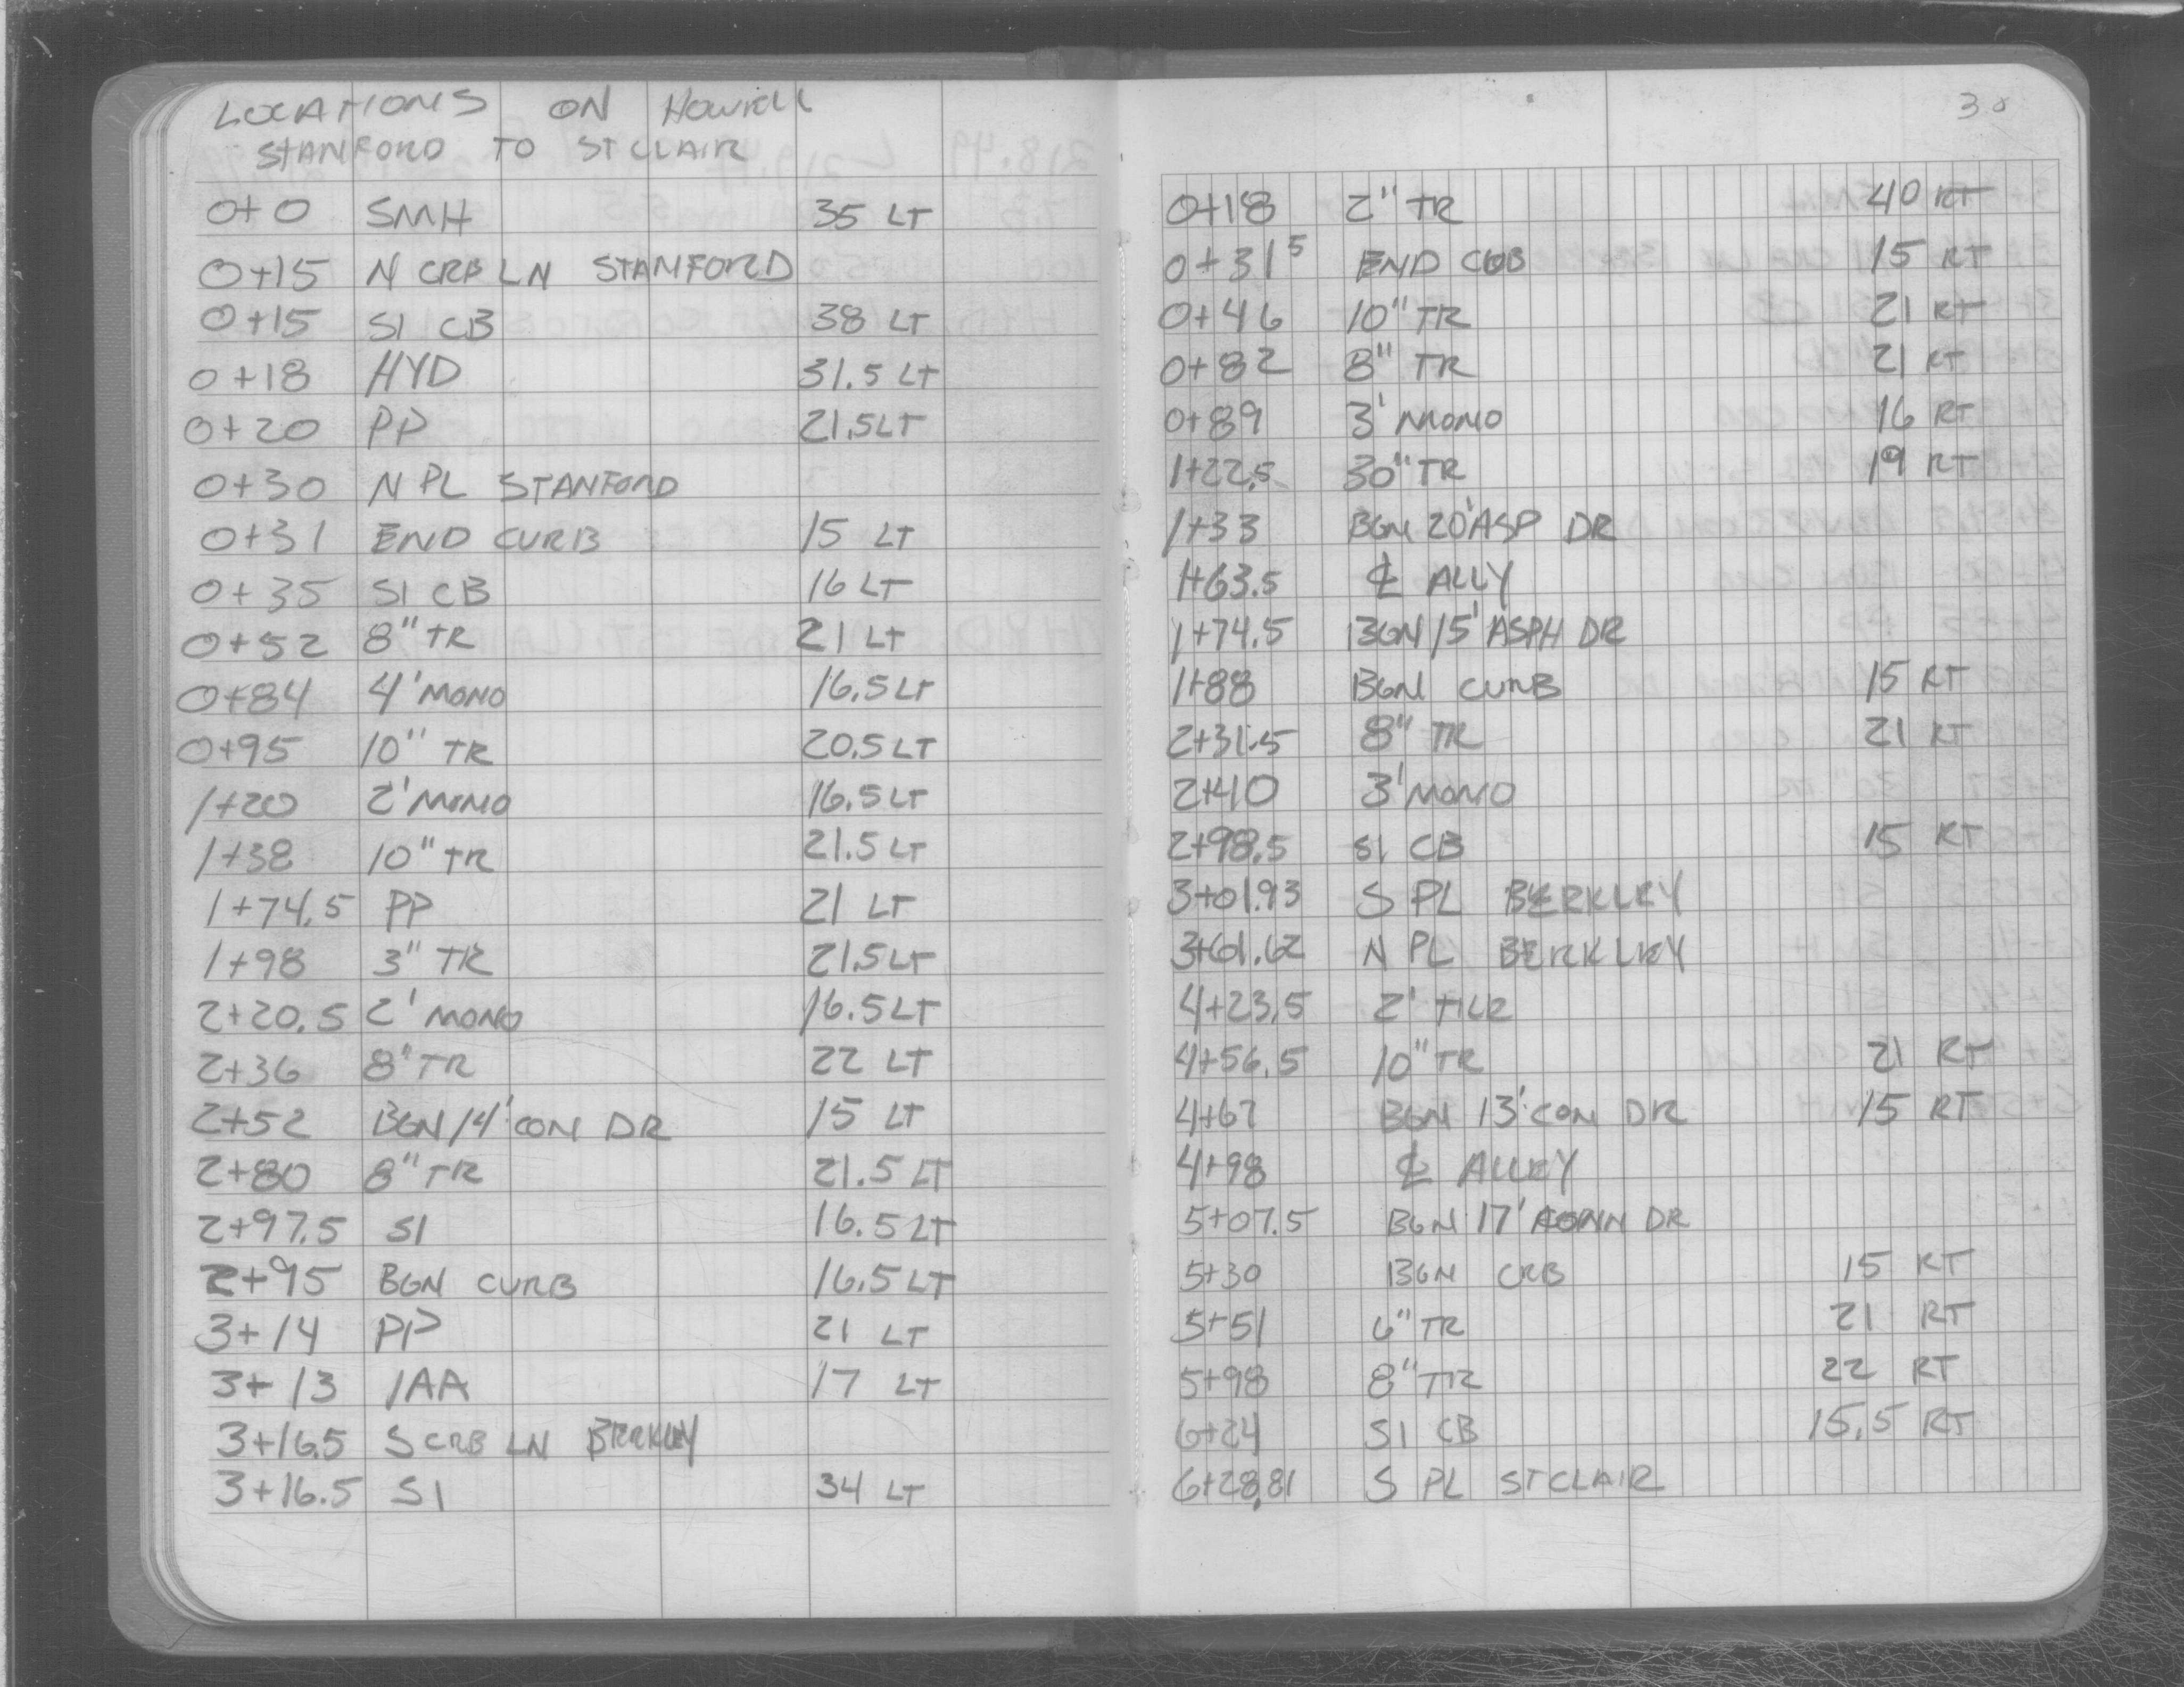 LOCATIONS ON HOWELL
STANFORD TO ST CLAIR
0+0 SMH 35 LT
0+15 N CRB LN STANFORD
0+15 SI CB 38 LT
0+18 HYD 31.5 LT
0+20 PP 21.5 LT
0+30 N PL STANFORD
0+31 END CURB 15 LT
0+35 SI CB 16 LT
0+52 8" TR 21 LT
0+84 4' MONO 16.5 LT
0+95 10" TR 20.5 LT
1+20 2' MONO 16.5 LT
1+38 10" TR 21.5 LT
1+74.5 PP 21 LT
1+98 3" TR 21.5 LT
2+20.5 2' MONO 16.5 LT
2+36 8" TR 22 LT
2+52 BGN 14' CON DR 15 LT
2+80 8" TR 21.5 LT
2+97.5 SI 16.5 LT
2+95 BGN CURB 16.5 LT
3+14 PP 21 LT
3+13 1AA 17 LT
3+16.5 S CRB LN BERKLEY
3+16.5 SI 34 LT
30
0+18 2" TR 40 RT
0+31⁵ END CUB 15 RT
0+46 10" TR 21 RT
0+82 8" TR 21 RT
0+89 3' MONO 16 RT
1+22.5 30" TR 19 RT
1+33 BGN 20' ASP DR
1+63.5 ℄ ALLY
1+74.5 BGN 15' ASPH DR
1+88 BGN CURB 15 RT
2+31.5 8" TR 21 RT
2+40 3' MONO
2+98.5 SI CB 15 RT
3+01.93 S PL BERKLEY
3+61.62 N PL BERKLEY
4+23.5 2'
4+56.5 10" TR 21 RT
4+67 BGN 13' CON DR 15 RT
4+98 ℄ ALLEY
5+07.5 BGN 17' DR
5+30 BGN CRB 15 RT
5+51 6" TR 21 RT
5+98 8" TR 22 RT
6+24 SI CB 15.5 RT
6+28.81 S PL ST CLAIR